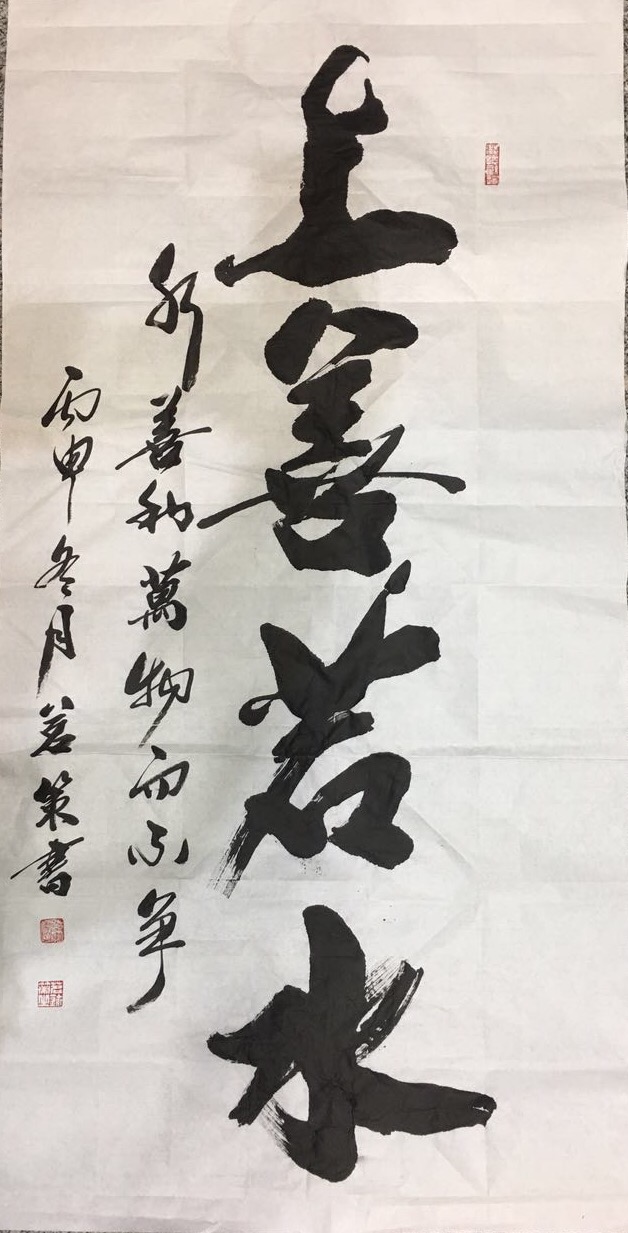 上善若水
水善利萬物而不争
丙申冬月茗策書